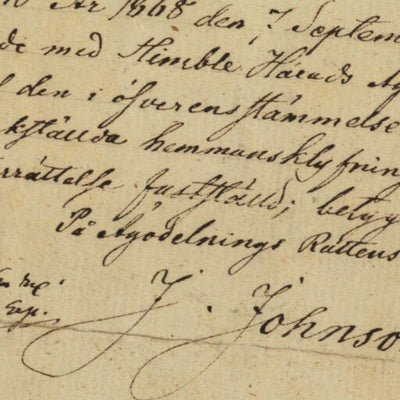 År 1868 den 7 Septem
de med Kimble Härads Äg
den i öfverensstämmelse
kstälda hemmansklyfning
rrättelse fastställd; betyg
På Ägodelnings Rättens
Exp.
J. Johnso